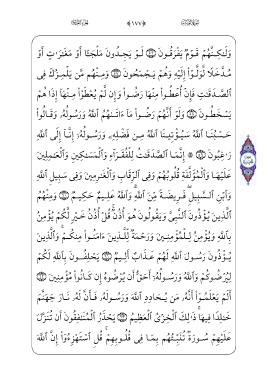 ﴿١٧٧﴾
وَلَٰكِنَّهُمْ قَوْمٌ يَفْرَقُونَ ۝ لَوْ يَجِدُونَ مَلْجَـًٔا أَوْ مَغَٰرَٰتٍ أَوْ
مُدَّخَلًا لَّوَلَّوْا۟ إِلَيْهِ وَهُمْ يَجْمَحُونَ ۝ وَمِنْهُم مَّن يَلْمِزُكَ فِى
ٱلصَّدَقَٰتِ فَإِنْ أُعْطُوا۟ مِنْهَا رَضُوا۟ وَإِن لَّمْ يُعْطَوْا۟ مِنْهَآ إِذَا هُمْ
يَسْخَطُونَ ۝ وَلَوْ أَنَّهُمْ رَضُوا۟ مَآ ءَاتَىٰهُمُ ٱللَّهُ وَرَسُولُهُۥ وَقَالُوا۟
حَسْبُنَا ٱللَّهُ سَيُؤْتِينَا ٱللَّهُ مِن فَضْلِهِۦ وَرَسُولُهُۥٓ إِنَّآ إِلَى ٱللَّهِ
رَٰغِبُونَ ۝ ۞ إِنَّمَا ٱلصَّدَقَٰتُ لِلْفُقَرَآءِ وَٱلْمَسَٰكِينِ وَٱلْعَٰمِلِينَ
عَلَيْهَا وَٱلْمُؤَلَّفَةِ قُلُوبُهُمْ وَفِى ٱلرِّقَابِ وَٱلْغَٰرِمِينَ وَفِى سَبِيلِ ٱللَّهِ
وَٱبْنِ ٱلسَّبِيلِ فَرِيضَةً مِّنَ ٱللَّهِ وَٱللَّهُ عَلِيمٌ حَكِيمٌ ۝ وَمِنْهُمُ
ٱلَّذِينَ يُؤْذُونَ ٱلنَّبِىَّ وَيَقُولُونَ هُوَ أُذُنٌ قُلْ أُذُنُ خَيْرٍ لَّكُمْ يُؤْمِنُ
بِٱللَّهِ وَيُؤْمِنُ لِلْمُؤْمِنِينَ وَرَحْمَةٌ لِّلَّذِينَ ءَامَنُوا۟ مِنكُمْ وَٱلَّذِينَ
يُؤْذُونَ رَسُولَ ٱللَّهِ لَهُمْ عَذَابٌ أَلِيمٌ ۝ يَحْلِفُونَ بِٱللَّهِ لَكُمْ
لِيُرْضُوكُمْ وَٱللَّهُ وَرَسُولُهُۥٓ أَحَقُّ أَن يُرْضُوهُ إِن كَانُوا۟ مُؤْمِنِينَ ۝
أَلَمْ يَعْلَمُوٓا۟ أَنَّهُۥ مَن يُحَادِدِ ٱللَّهَ وَرَسُولَهُۥ فَأَنَّ لَهُۥ نَارَ جَهَنَّمَ
خَٰلِدًا فِيهَا ذَٰلِكَ ٱلْخِزْىُ ٱلْعَظِيمُ ۝ يَحْذَرُ ٱلْمُنَٰفِقُونَ أَن تُنَزَّلَ
عَلَيْهِمْ سُورَةٌ تُنَبِّئُهُم بِمَا فِى قُلُوبِهِمْ قُلِ ٱسْتَهْزِءُوٓا۟ إِنَّ ٱللَّهَ